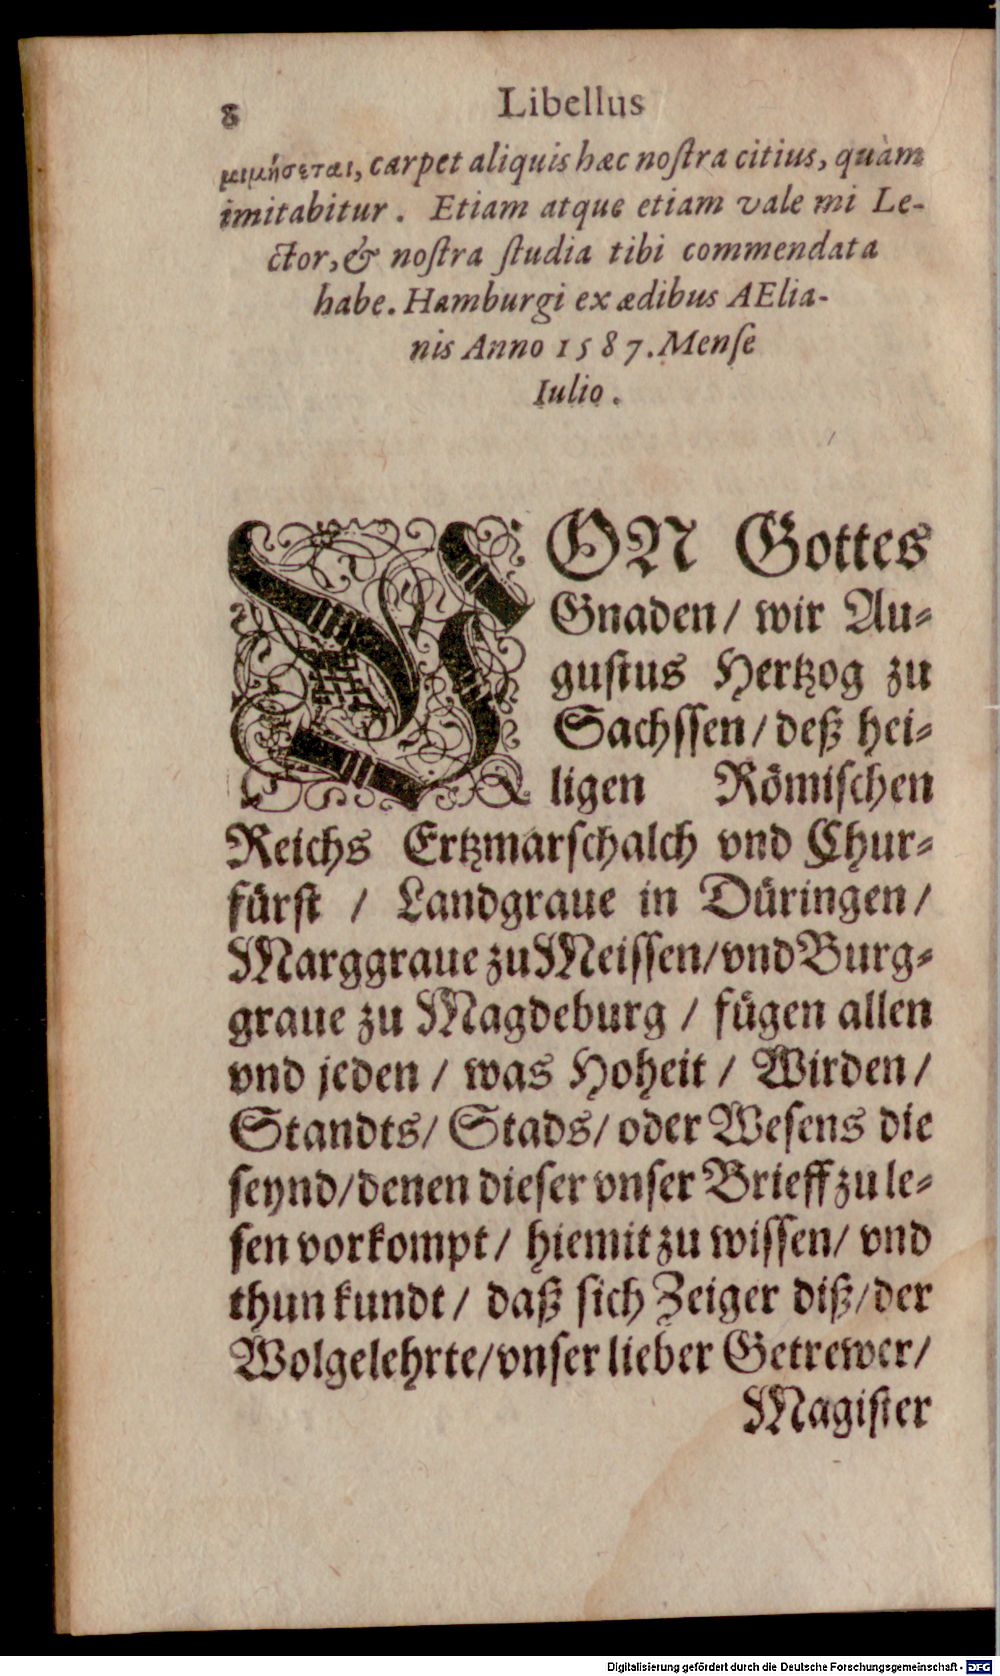 8 Libellus
μιμήσεται, carpet aliquis hæc noſtra citius, quàm
imitabitur. Etiam atque etiam vale mi Le-
ctor, & noſtra ſtudia tibi commendata
habe. Hamburgi ex ædibus AElia-
nis Anno 1587. Menſe
Iulio.
VON Gottes
Gnaden / wir Au-
guſtus Hertzog zu
Sachſſen / deß hei-
ligen Römiſchen
Reichs Ertzmarſchalch vnd Chur-
fürſt / Landgraue in Düringen /
Marggraue zu Meiſſen / vnd Burg-
graue zu Magdeburg / fügen allen
vnd jeden / was Hoheit / Wirden /
Standts / Stads / oder Weſens die
ſeynd / denen dieſer vnſer Brieff zu le-
ſen vorkompt / hiemit zu wiſſen / vnd
thun kundt / daß ſich Zeiger diß / der
Wolgelehrte / vnſer lieber Getrewer /
Magiſter
Digitalisierung gefördert durch die Deutsche Forschungsgemeinschaft - DFG